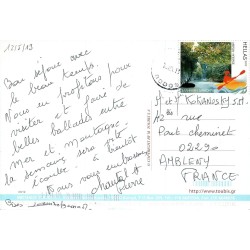 12/8/13
Bon séjour avec
le beau temps.
Nous en profitons pour
visiter et faire de
belles ballades entre
Mer et montagne.
la semaine sera vite
écoulée - à bientôt
Nous vous embrassons
Chantal et
Pierre
HELLAS
Mr et Me
rue
Pont cheminet
02290
AMBLENY
FRANCE
http://www.toubis.gr